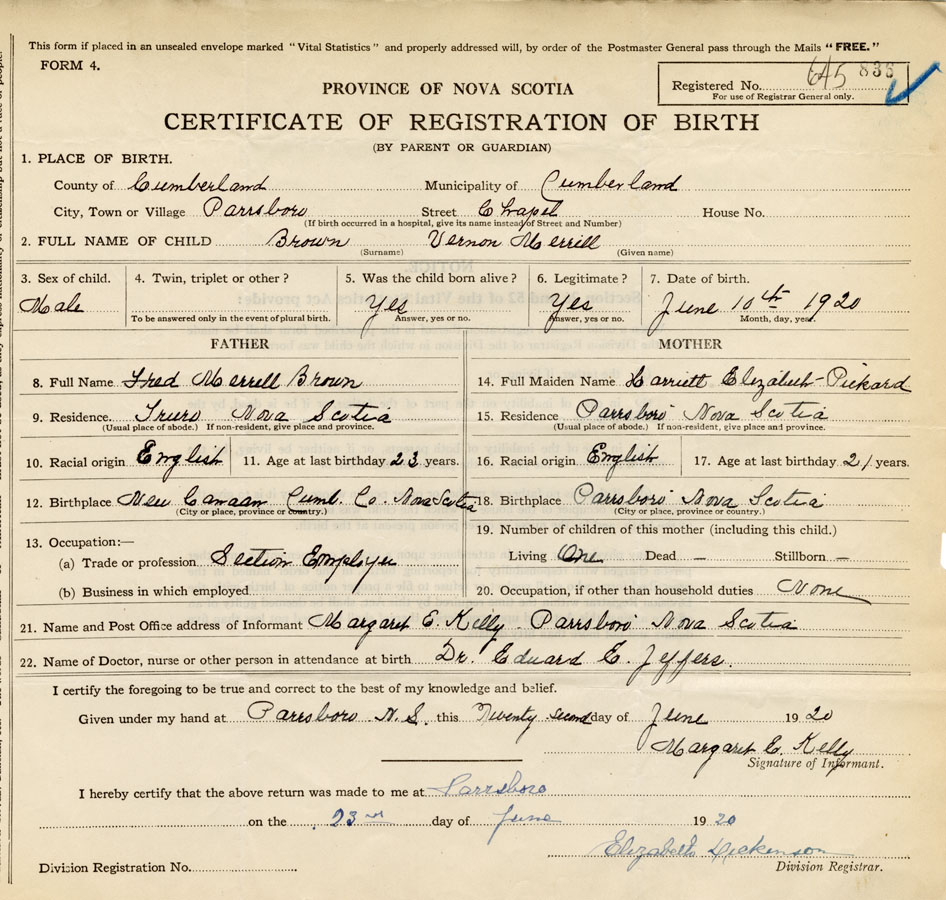 This form if placed in an unsealed envelope marked "Vital Statistics" and properly addressed will, by order of the Postmaster General pass through the Mails "FREE."
FORM 4.
Registered No. 645 836
For use of Registrar General only.
PROVINCE OF NOVA SCOTIA
CERTIFICATE OF REGISTRATION OF BIRTH
(BY PARENT OR GUARDIAN)
1. PLACE OF BIRTH.
County of Cumberland Municipality of Cumberland
City, Town or Village Parrsboro Street Chapel House No.
(If birth occurred in a hospital, give its name instead of Street and Number)
2. FULL NAME OF CHILD Brown Vernon Merrill
(Surname) (Given name)
3. Sex of child. 4. Twin, triplet or other? 5. Was the child born alive? 6. Legitimate? 7. Date of birth.
Male Yes Yes June 10th 1920
To be answered only in the event of plural birth. Answer, yes or no. Answer, yes or no. Month, day, year.
FATHER MOTHER
8. Full Name Fred Merrell Brown 14. Full Maiden Name Harriett Elizabeth Pickard
9. Residence. Truro Nova Scotia 15. Residence Parrsboro Nova Scotia
(Usual place of abode.) If non-resident, give place and province. (Usual place of abode.) If non-resident, give place and province.
10. Racial origin English 11. Age at last birthday 23 years. 16. Racial origin English 17. Age at last birthday 21 years.
12. Birthplace New Canaan Cumb. Co. Nova Scotia 18. Birthplace Parrsboro Nova Scotia
(City or place, province or country.) (City or place, province or country.)
19. Number of children of this mother (including this child.)
13. Occupation:—
(a) Trade or profession Section Employe Living One Dead — Stillborn —
(b) Business in which employed 20. Occupation, if other than household duties None
21. Name and Post Office address of Informant Margaret E. Kelly Parrsboro Nova Scotia
22. Name of Doctor, nurse or other person in attendance at birth Dr. Eduard E. Jeffers.
I certify the foregoing to be true and correct to the best of my knowledge and belief.
Given under my hand at Parrsboro N.S. this Twenty second day of June 1920
Margaret E. Kelly
Signature of Informant.
I hereby certify that the above return was made to me at Parrsboro
on the 23rd day of June 1920
Elizabeth Dickenson
Division Registration No. Division Registrar.